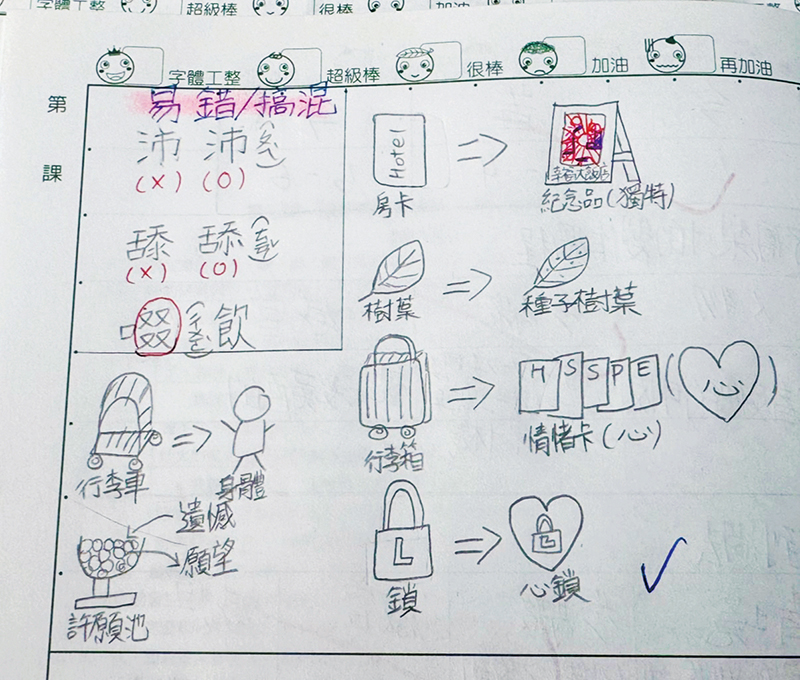 字體工整 超級棒 很棒 加油
字體工整 超級棒 很棒 加油 再加油
第
課
易錯/搞混
沛 沛(ㄆㄟˋ)
(X) (O)
舔 舔
(X) (O)
啜 飲
行李車 => 身體
遺憾
願望
許願池
Hotel =>
房卡 紀念品(獨特)
=>
樹葉 種子樹葉
=> H S S P E (心)
行李箱 情緒卡(心)
L => L
鎖 心鎖